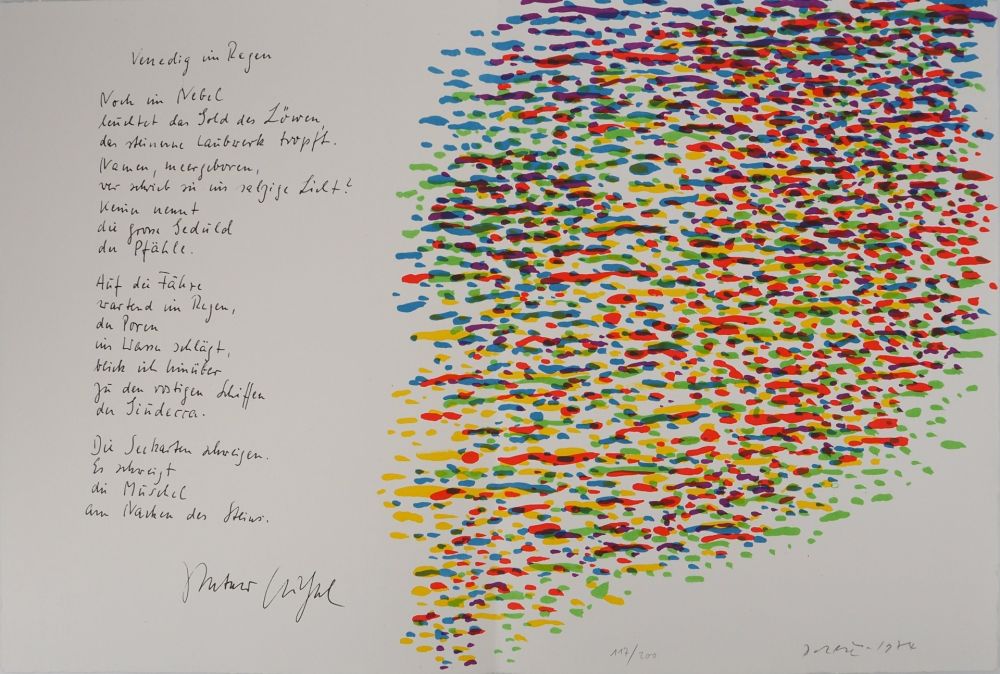 Venedig im Regen
Noch im Nebel
leuchtet das Gold des Löwen,
das steinerne Laubwerk tropft.
Namen, meergeboren,
wer schrieb sie ins salzige Licht?
Keiner nennt
die grosse Geduld
der Pfähle.
Auf die Fähre
wartend im Regen,
der Poren
ins Wasser schlägt,
blick ich hinüber
zu den rostigen Schiffen
der Giudecca.
Die Seekarten schweigen.
Es schweigt
die Muschel
am Nacken des Steins.
117/200